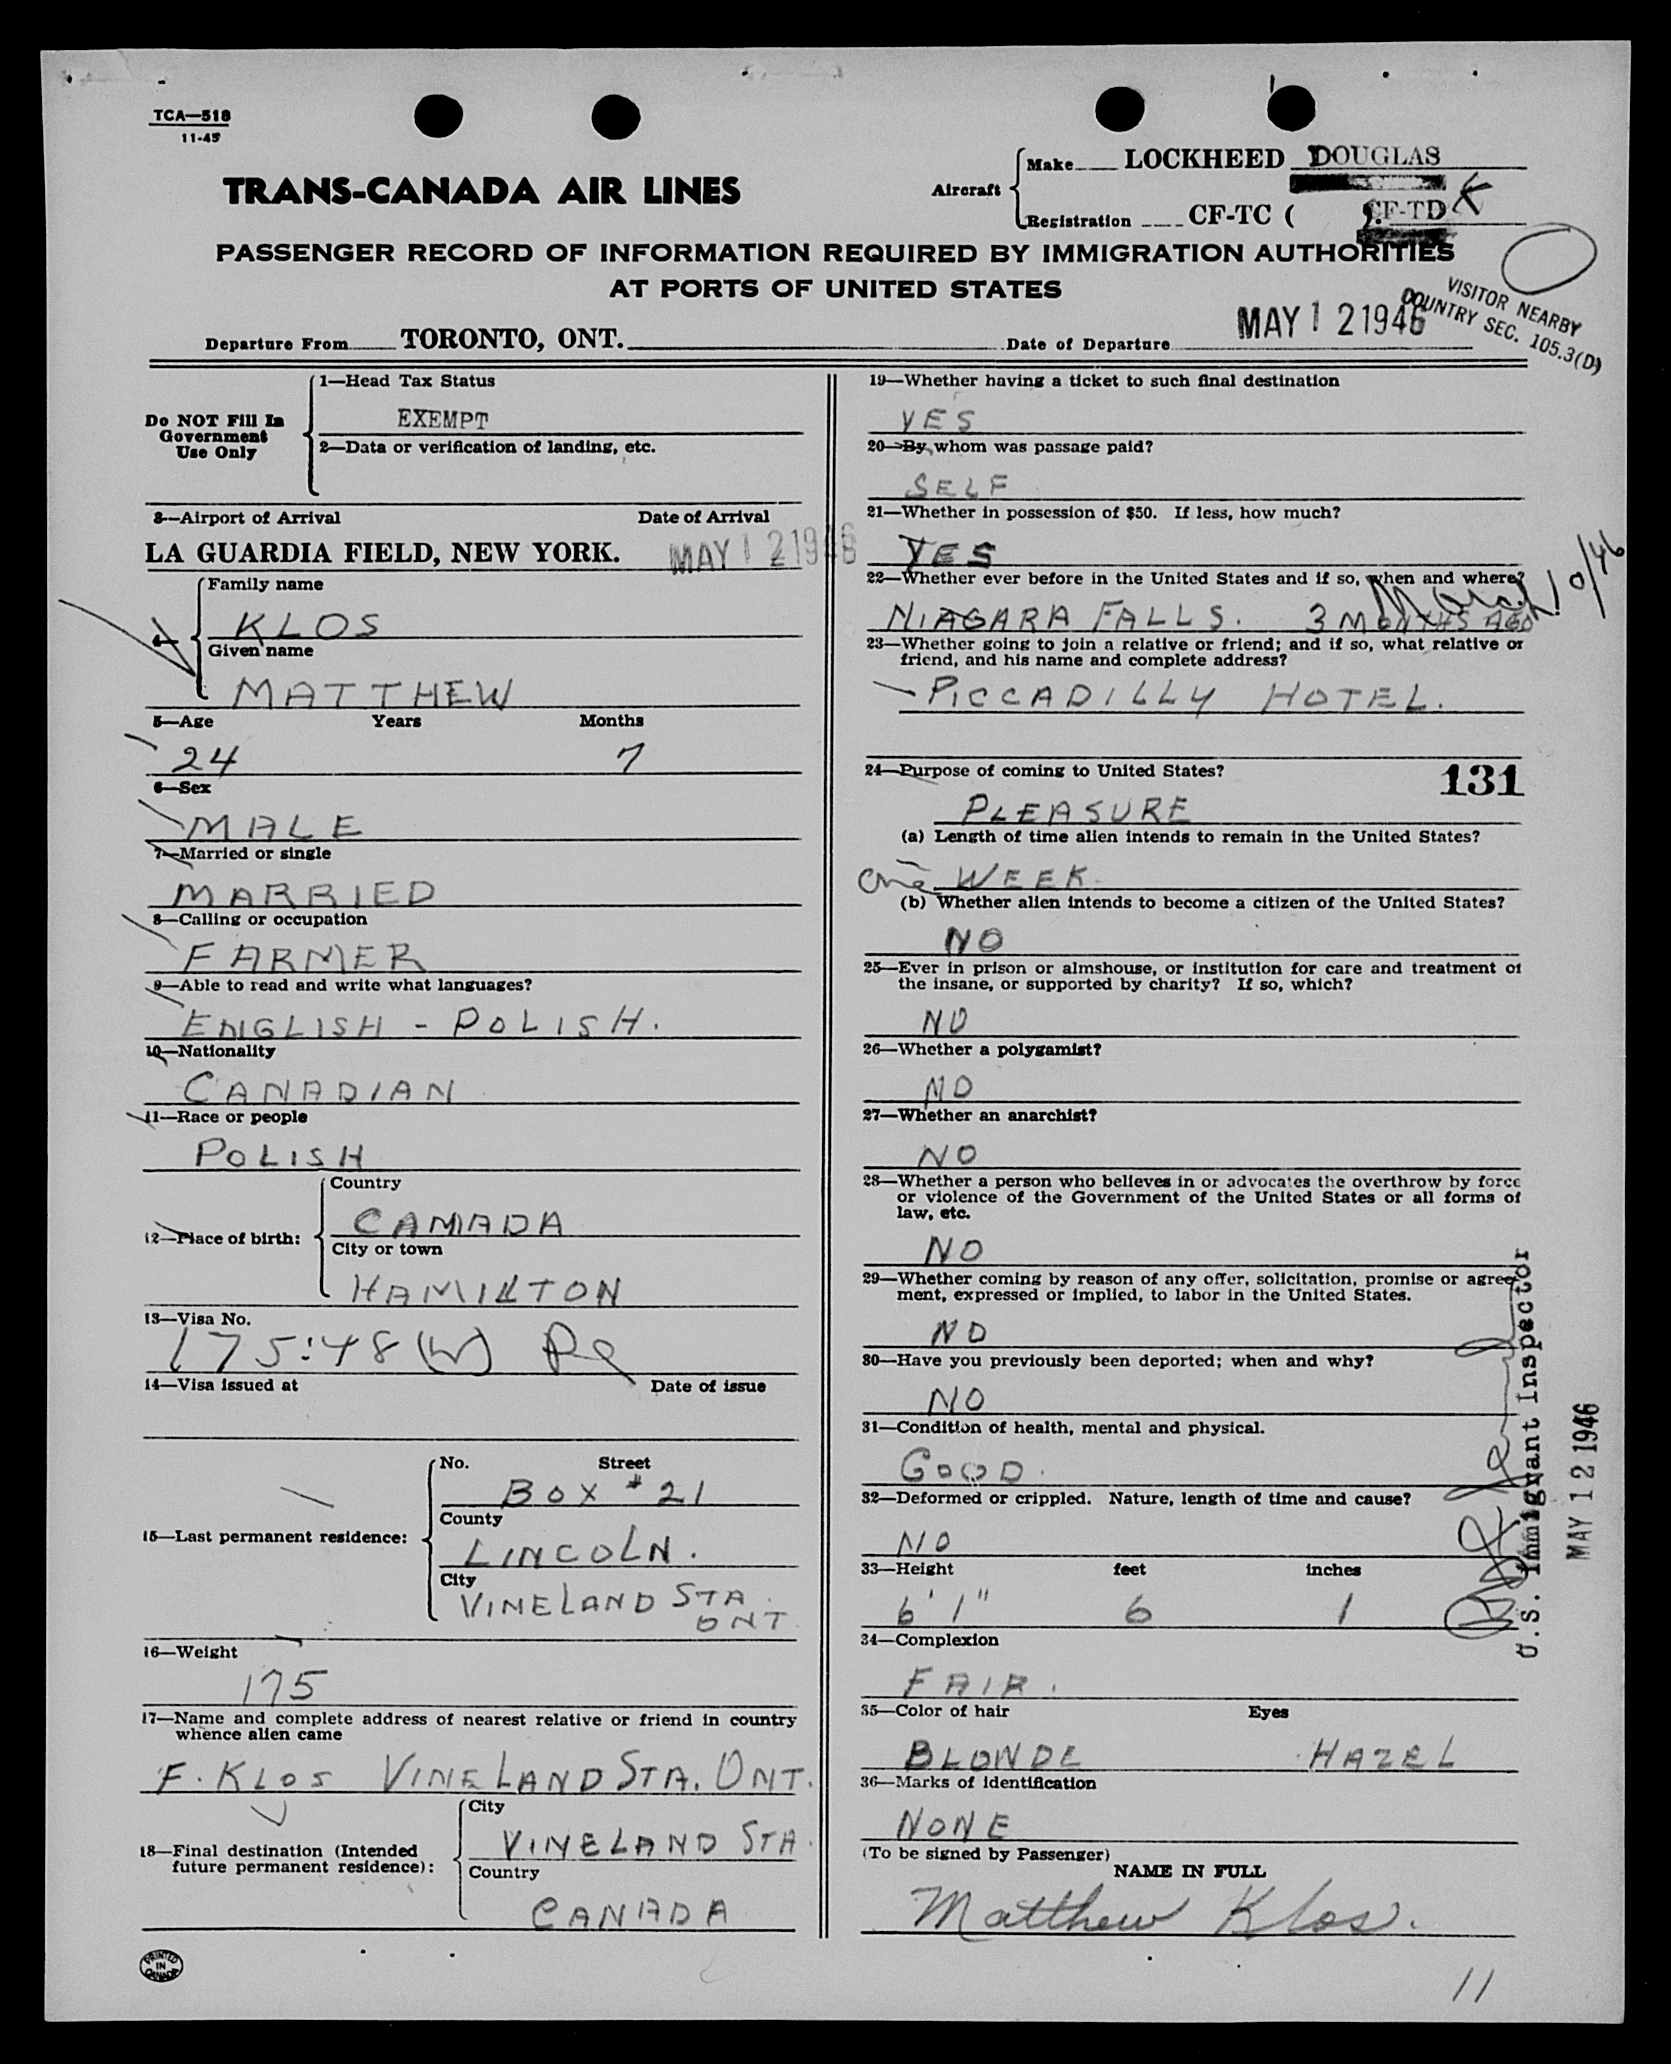 TCA—518
11-45
TRANS-CANADA AIR LINES
Aircraft
Make LOCKHEED DOUGLAS
Registration CF-TC ( ). CF-TD K
PASSENGER RECORD OF INFORMATION REQUIRED BY IMMIGRATION AUTHORITIES
AT PORTS OF UNITED STATES
VISITOR NEARBY
COUNTRY SEC. 105.3(D)
Departure From TORONTO, ONT. Date of Departure MAY 12 1946
Do NOT Fill In
Government
Use Only
1—Head Tax Status
EXEMPT
2—Data or verification of landing, etc.
3—Airport of Arrival Date of Arrival
LA GUARDIA FIELD, NEW YORK. MAY 12 1946
4—
Family name
KLOS
Given name
MATTHEW
5—Age Years Months
24 7
6—Sex
MALE
7—Married or single
MARRIED
8—Calling or occupation
FARMER
9—Able to read and write what languages?
ENGLISH - POLISH.
10—Nationality
CANADIAN
11—Race or people
POLISH
12—Place of birth:
Country
CANADA
City or town
HAMILTON
13—Visa No.
175:48 (W)
14—Visa issued at Date of issue
15—Last permanent residence:
No. Street
BOX #21
County
LINCOLN.
City
VINELAND STA.
ONT
16—Weight
175
17—Name and complete address of nearest relative or friend in country
whence alien came
F. KLOS VINELAND STA. ONT.
18—Final destination (Intended
future permanent residence):
City
VINELAND STA.
Country
CANADA
PRINTED
IN
CANADA
19—Whether having a ticket to such final destination
YES
20—By whom was passage paid?
SELF
21—Whether in possession of $50. If less, how much?
YES
22—Whether ever before in the United States and if so, when and where?
NIAGARA FALLS. 3 MONTHS AGO
March 10/46
23—Whether going to join a relative or friend; and if so, what relative or
friend, and his name and complete address?
PICCADILLY HOTEL.
24—Purpose of coming to United States?
131
PLEASURE
(a) Length of time alien intends to remain in the United States?
One WEEK
(b) Whether alien intends to become a citizen of the United States?
NO
25—Ever in prison or almshouse, or institution for care and treatment of
the insane, or supported by charity? If so, which?
NO
26—Whether a polygamist?
NO
27—Whether an anarchist?
NO
28—Whether a person who believes in or advocates the overthrow by force
or violence of the Government of the United States or all forms of
law, etc.
NO
29—Whether coming by reason of any offer, solicitation, promise or agree-
ment, expressed or implied, to labor in the United States.
NO
30—Have you previously been deported; when and why?
NO
31—Condition of health, mental and physical.
GOOD.
32—Deformed or crippled. Nature, length of time and cause?
NO
33—Height feet inches
6' 1" 6 1
34—Complexion
FAIR.
35—Color of hair Eyes
BLONDE HAZEL
36—Marks of identification
NONE
(To be signed by Passenger)
NAME IN FULL
Matthew Klos.
U.S. Immigrant Inspector
MAY 12 1946
11